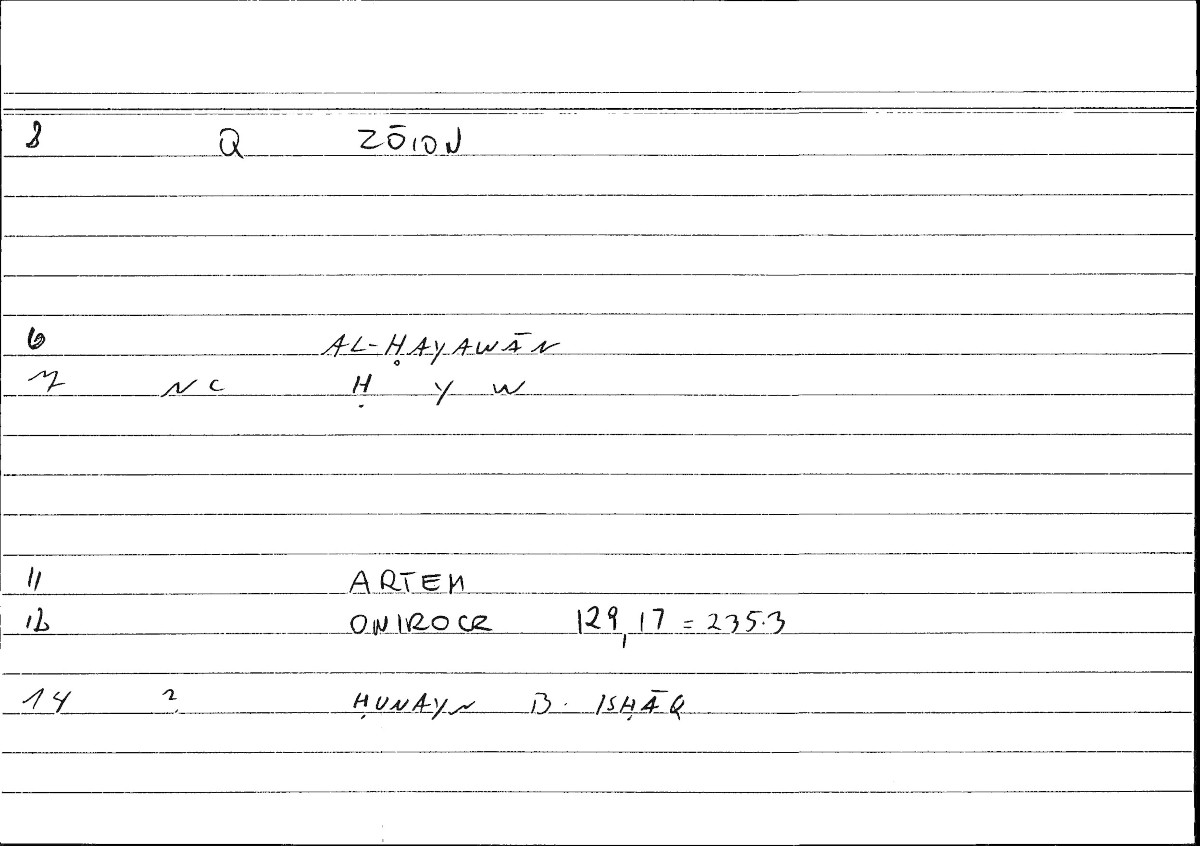 8 Q ZŌION
6 AL-ḤAYAWĀN
7 NC Ḥ Y W
11 ARTEM
12 ONIROCR 129,17 = 235.3
14 ? ḤUNAYN B. ISḤĀQ